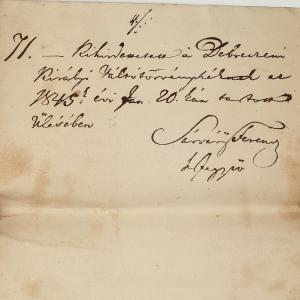 4./.
71. — Kihirdettetett a Debreczeni
Királyi Váltótörvényszéknek az
1845k évi Jan. 20.kán tartott
Ülésében
Sárváry Ferencz